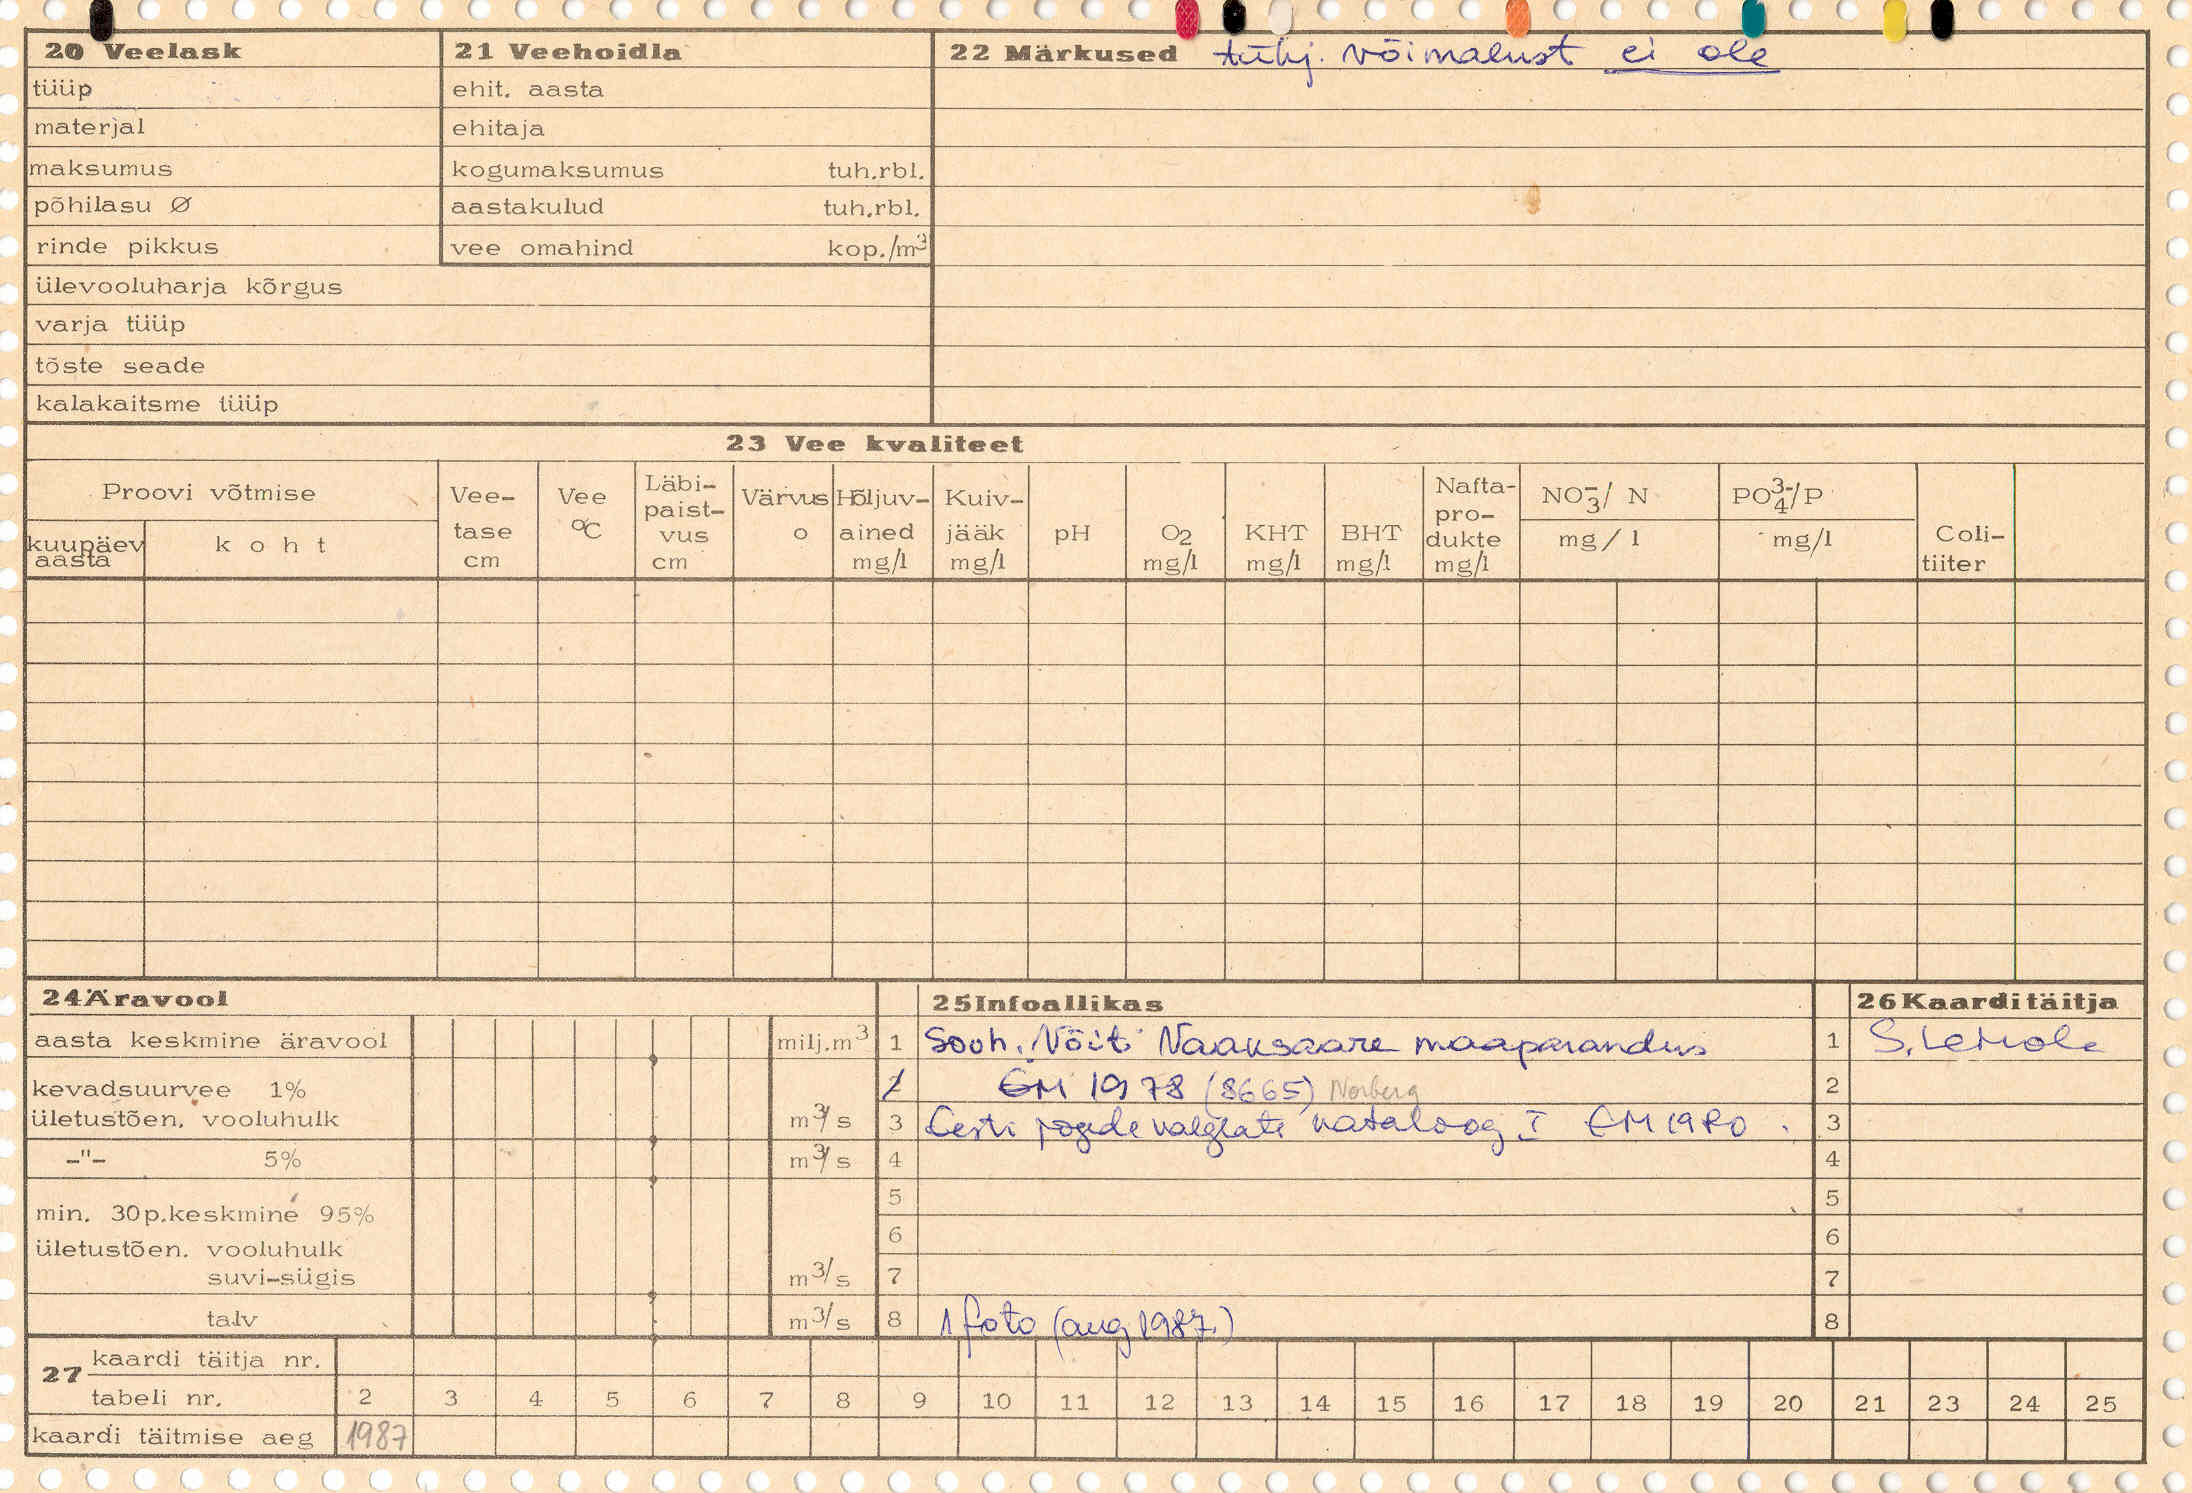 20 Veelask
tüüp
materjal
maksumus
põhilasu Ø
rinde pikkus
ülevooluharja kõrgus
varja tüüp
tõste seade
kalakaitsme tüüp
21 Veehoidla
ehit. aasta
ehitaja
kogumaksumus tuh.rbl.
aastakulud tuh.rbl.
vee omahind kop./m³
22 Märkused tühj. võimalust ei ole
23 Vee kvaliteet
Proovi võtmise
kuupäev
aasta
koht
Vee-
tase
cm
Vee
°C
Läbi-
paist-
vus
cm
Värvus
o
Hõljuv-
ained
mg/l
Kuiv-
jääk
mg/l
pH
O₂
mg/l
KHT
mg/l
BHT
mg/l
Nafta-
pro-
dukte
mg/l
NO₃⁻/ N
mg/l
PO₄³⁻/P
mg/l
Coli-
tiiter
24 Äravool
aasta keskmine äravool milj.m³
kevadsuurvee 1%
ületustõen. vooluhulk m³/s
-"- 5% m³/s
min. 30p.keskmine 95%
ületustõen. vooluhulk
suvi-sügis m³/s
talv m³/s
25 Infoallikas
1 Sooh. Naaksaare maaparandus
2 EM 1978 (8665) Norberg
3 Eesti jõgede valglate kataloog I EM 1980.
4
5
6
7
8 1 foto (aug 1987.)
26 Kaardi täitja
1
2
3
4
5
6
7
8
27 kaardi täitja nr.
tabeli nr. 2 3 4 5 6 7 8 9 10 11 12 13 14 15 16 17 18 19 20 21 23 24 25
kaardi täitmise aeg 1987